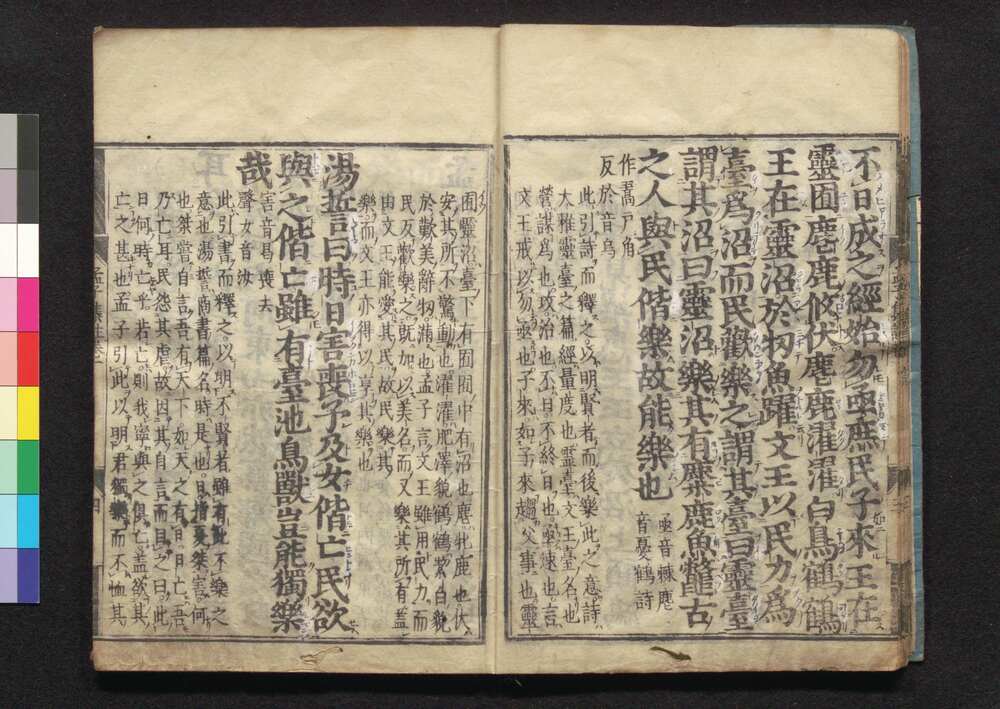 不日成之經始勿亟庶民子來王在
靈囿麀鹿攸伏麀鹿濯濯白鳥鶴鶴
王在靈沼於牣魚躍文王以民力爲
臺爲沼而民歡樂之謂其臺曰靈臺
謂其沼曰靈沼樂其有麋鹿魚鼈古
之人與民偕樂故能樂也
亟音棘麀
音憂鶴詩
作翯戸角
反於音烏
此引詩而釋之以明賢者而後樂此之意詩
大雅靈臺之篇經量度也靈臺文王臺名也
營謀爲也攻治也不日不終日也亟速也言
文王戒以勿亟也子來如子來趨父事也靈
囿靈沼臺下有囿囿中有沼也麀牝鹿也伏
安其所不驚動也濯濯肥澤貌鶴鶴潔白貌
於歎美辭牣滿也孟子言文王雖用民力而
民反歡樂之既加以美名而又樂其所有蓋
由文王能愛其民故民樂其
樂而文王亦得以享其樂也
湯誓曰時日害喪予及女偕亡民欲
與之偕亡雖有臺池鳥獸豈能獨樂
哉
害音曷喪去
聲女音汝
此引書而釋之以明不賢者雖有此不樂之
意也湯誓商書篇名時是也日指夏桀害何
也桀嘗自言吾有天下如天之有日日亡吾
乃亡耳民怨其虐故因其自言而目之曰此
日何時亡乎若亡則我寧與之俱亡蓋欲其
亡之甚也孟子引此以明君獨樂而不恤其